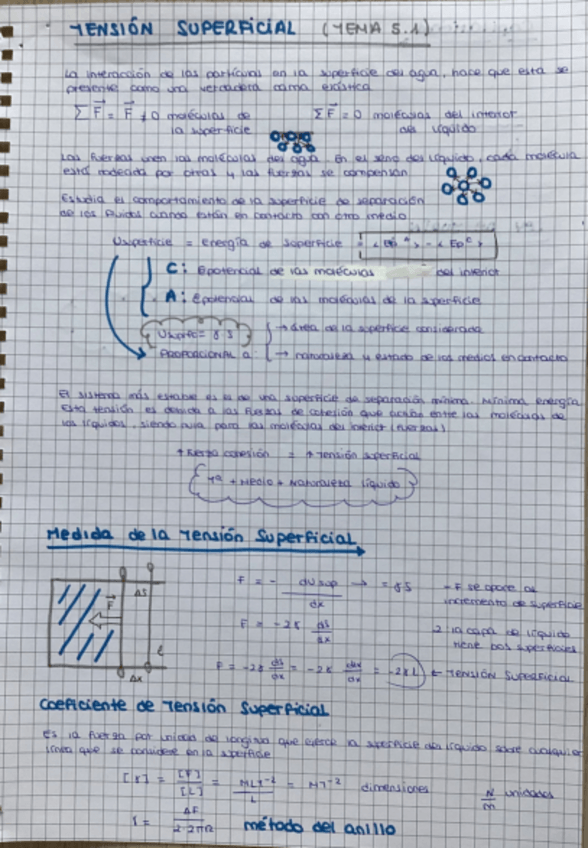 TENSIÓN SUPERFICIAL (TEMA 5.1)
La interacción de las partículas en la superficie del agua, hace que esta se
presente como una verdadera cama elástica
Σ F = F ≠ 0 moléculas de la superficie
Σ F = 0 moléculas del interior del líquido
Las fuerzas unen las moléculas del agua. En el seno del líquido, cada molécula
está rodeada por otras y las fuerzas se compensan.
Estudia el comportamiento de la superficie de separación
de los fluidos cuando están en contacto con otro medio.
Usuperficie = energía de superficie = <Ep A> - <Ep C>
C: Epotencial de las moléculas del interior
A: Epotencial de las moléculas de la superficie
Usuperf = γS
PROPORCIONAL a:
→ área de la superficie considerada
→ naturaleza y estado de los medios en contacto
El sistema más estable es el de una superficie de separación mínima. Mínima energía
Esta tensión es debida a las fuerzas de cohesión que actúan entre las moléculas de
los líquidos, siendo nula para las moléculas del interior (fuerzas)
↑ fuerza cohesión = ↑ tensión superficial
Tª + Medio + Naturaleza líquido
Medida de la Tensión Superficial
ΔS
F
l
Δx
F = - dUsup / dx → = γS
- F se opone al
incremento de superficie
F = -2γ ds/dx
2 la capa de líquido
tiene dos superficies
F = -2γ ds/dx = -2γ dlx/dx = -2γL ← TENSIÓN SUPERFICIAL
Coeficiente de Tensión Superficial
Es la fuerza por unidad de longitud que ejerce la superficie del líquido sobre cualquier
línea que se considere en la superficie
[γ] = [F]/[L] = MLT⁻²/L = MT⁻² dimensiones N/m unidades
γ = ΔF / 2·2πR método del anillo